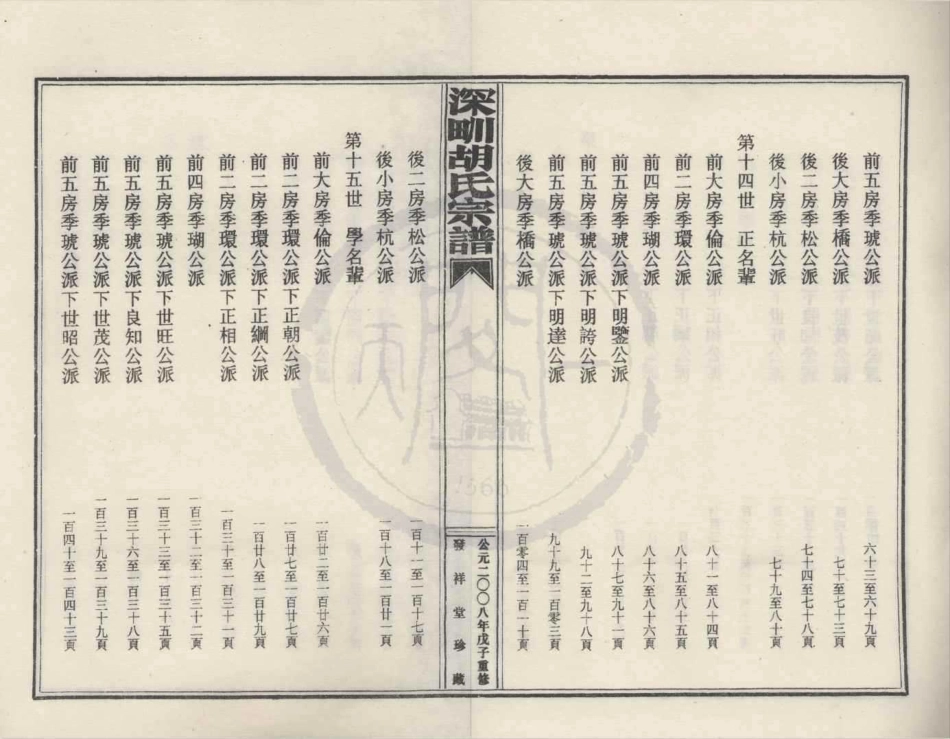 前五房季琥公派 六十三至六十九頁
後大房季橋公派 七十至七十三頁
後二房季松公派 七十四至七十八頁
後小房季杭公派 七十九至八十頁
第十四世 正名輩
前大房季倫公派 八十一至八十四頁
前二房季環公派 八十五至八十五頁
前四房季瑚公派 八十六至八十六頁
前五房季琥公派下明鑒公派 八十七至九十一頁
前五房季琥公派下明誇公派 九十二至九十八頁
前五房季琥公派下明達公派 九十九至一百零三頁
後大房季橋公派 一百零四至一百一十頁
深甽胡氏宗譜
公元二〇〇八年戊子重修
發祥堂珍藏
後二房季松公派 一百十一至一百十七頁
後小房季杭公派 一百十八至一百廿一頁
第十五世 學名輩
前大房季倫公派 一百廿二至一百廿六頁
前二房季環公派下正朝公派 一百廿七至一百廿七頁
前二房季環公派下正綱公派 一百廿八至一百廿九頁
前二房季環公派下正相公派 一百三十至一百三十一頁
前四房季瑚公派 一百三十二至一百三十二頁
前五房季琥公派下世旺公派 一百三十三至一百三十五頁
前五房季琥公派下良知公派 一百三十六至一百三十八頁
前五房季琥公派下世茂公派 一百三十九至一百三十九頁
前五房季琥公派下世昭公派 一百四十至一百四十三頁